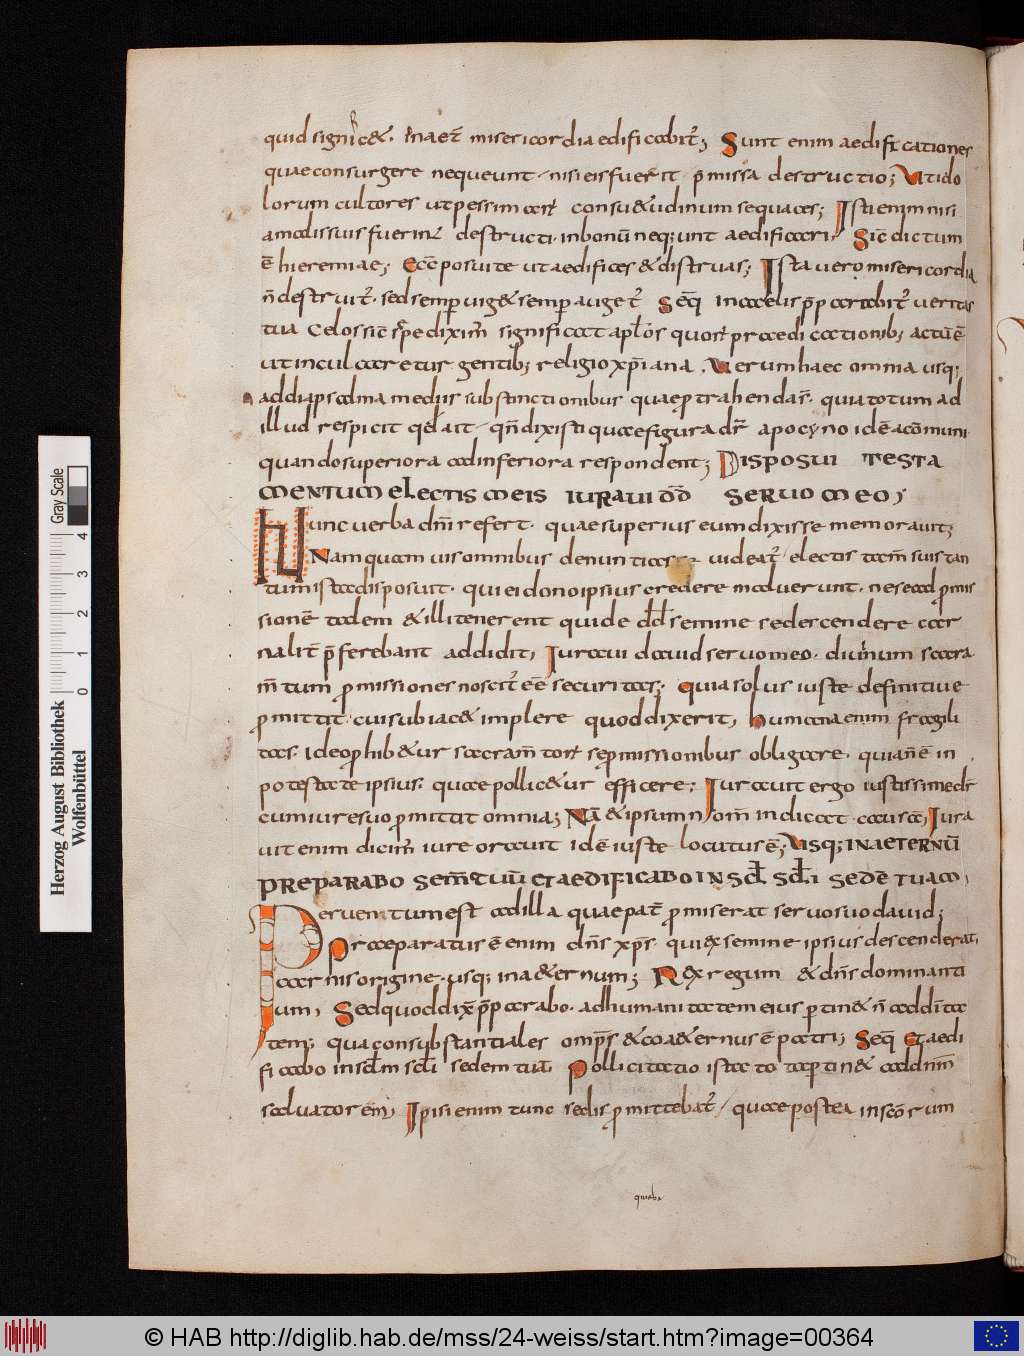 quid significet. Inaet̄ misericordia edificabit̄; Sunt enim aedificationes
quae consurgere nequeunt / nisi eis fuerit p̄missa destructio; Ut ido
lorum cultores ut pessimarū consuetudinum sequaces; Isti enim nisi
amalis suis fuerint destructi. in bonū neq;unt aedificari. Sic̄ dictum
ē hieremiae; Ecce posui te ut aedifices & distruas; Ista vero misericordia
n̄ destruit̄. sed semp viget semp auget̄ Seq̄ In caelis p̄parabit̄ veritas
tua Celos sic̄ sepe dixim̄ significat aplōs quorū praedicationib; actū ē
ut incularetur gentib; religio xp̄iana. Verum haec omnia usq;
ad diapsalma mediis substinctionibus quae p̄trahendas. quia totum ad
illud respicit qd̄ ait / qn̄ dixisti quae figura dr̄ apocyno id ē a cōmuni
quando superiora ad inferiora respondent; DISPOSUI TESTA
MENTUM ELECTIS MEIS IURAUI DD SERUO MEO;
Nunc verba dn̄i refert. quae superius eum dixisse memorauit;
Nam quamuis omnibus denuntias videat̄ / electis tam̄ suis tan
tum ista disposuit. qui ei dono ipsius credere maluerunt. ne sead p̄mis
sionē tadem & illi tenerent qui de dd̄ semine se descendere car
nalit̄ p̄ferebant addidit, Iuraui dauid seruo meo. diuinum sacra
m̄tum p̄missiones noscit̄ eē securitas; Quia solus iuste definitiue
p̄mittit. cui subiacet implere quod dixerit, humana enim fragili
tas. ideo p̄hibetur sacram̄toꝝ se p̄missionibus obligare. quia n̄ ē in
potestate ipsius. quae pollicetur efficere; Iurauit ergo iustissime dr̄
cum iure suo p̄mittit omnia; Nā & ipsum nom̄ indicat causā, Iura
uit enim dicim̄ iure orauit id ē iuste locutus ē; USQ; IN AETERNŪ
PREPARABO SEM̄ TUŪ ET AEDIFICABO IN SCL̄M SCL̄I SEDĒ TUAM,
Peruentum est ad illa quae pat̄ p̄miserat seruo suo dauid;
Praeparatus ē enim dn̄s xp̄s. qui ex semine ipsius descenderat
carnis origine. usq; in aeternum; Rex regum & dn̄s dominanti
um, Sed quod dix̄ p̄parabo. ad humanitatem eius p̄tinet n̄ ad dīta
tem; qua consubstantiales omp̄s & coaeternus ē patri; Seq̄ Et aedi
ficabo in scl̄m scl̄i sedem tuā. Pollicitatio ista tota ptinet ad dnm̄
saluatorem, Ipsi enim tunc sedis p̄mittebat̄ / quae postea in scōrum
quiaba
Herzog August Bibliothek
Wolfenbüttel
Gray Scale
0 1 2 3 4
© HAB http://diglib.hab.de/mss/24-weiss/start.htm?image=00364